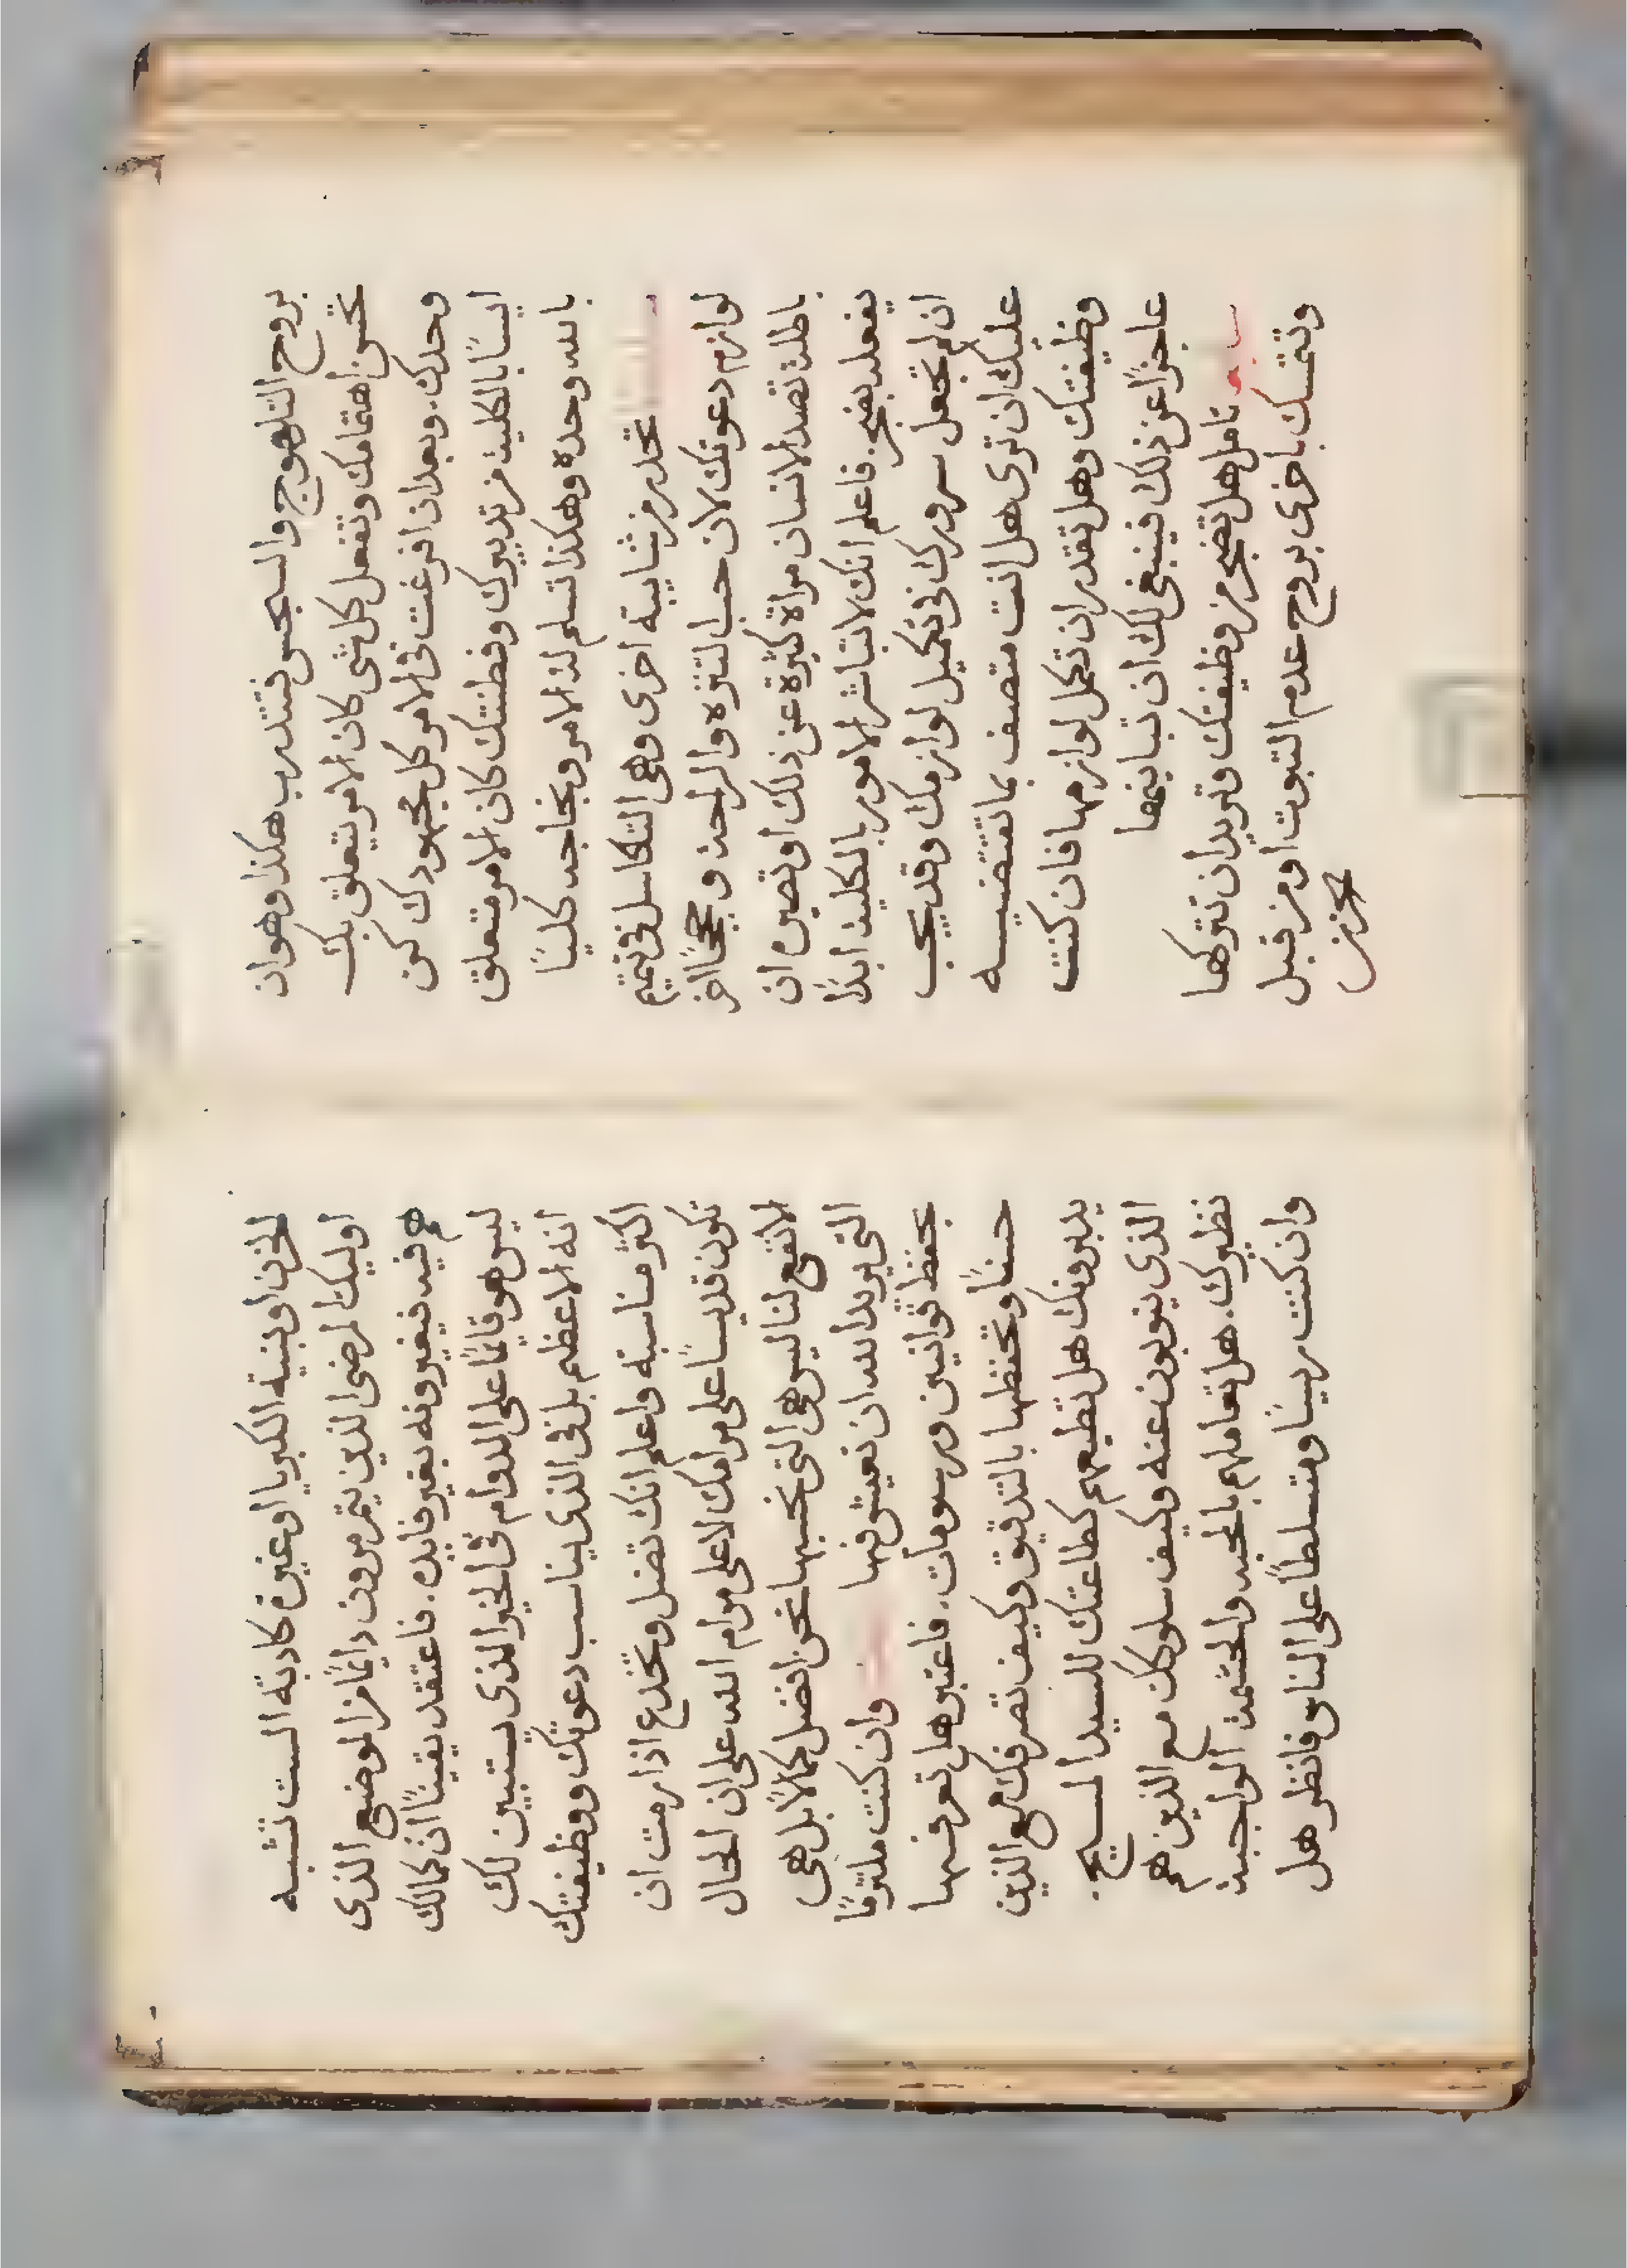 بروح التلهوج والسجس فتتدرب هكذا وهو ان
تحسن اهتمامك وتفعل كل شي كان الامر يتعلق بك
وحدك. وبعد ان افرغت في الامر كل مجهودك كن
ايسًا بالكلية من تدبيرك وفطنتك كان الامر متعلق
بالله وحده وهكذا تسلم لله الامر ونجاحه كليًا
تحذر من شايبة اخرى وهي التكاسل في تتميم
لوازم دعوتك لان حب التنزه والراحة وحججًا اخر
باطلة تصد الانسان مرارة كثيرة عن ذلك او تصيره ان
يفعله بضجر. فاعلم انك لا تباشر الامور بالكلية ابدًا
ان لم تجعل سرورك في تكميل لوازمك وقد يجب
عليك ان ترى هل انت متصف بما تقتضيه
وظيفتك وهل تقدر ان تكمل لوازمها فان كنت
عاجزًا عن ذلك فينبغي لك ان تباينها
تامل هل تضجر من وظيفتك وتريد ان تتركها
وتتمسك باخرى بروح عدم الثبوت او من قبل
لحزن
لحزن او بنية الكبريا او غيرة كادبة الست تشبه
اوليك المرضى الذين يتمرمرون دايمًا من الموضع الذي
هم فيه فيغيرونه بغير فايده. فاعتقد يقينًا ان كمالك
ليس هو قايمًا على الدوام في الخير الذي يستبين لك
انه الاعظم بل في الذي يناسب دعوتك ووظيفتك
اكثر مناسبة واعلم انك تضل وتخدع اذا رمت ان
تكون قديسًا على مرامك لا على مرام الله على ان الحال
الانفع لنا ليس هي التي نحبها نحن افضل كمالًا بل هي
التي يريد الله ان نعيش فيها وان كنت ملتزمًا
بحفظ قوانين ورسومات. فاعتبر هل تعرفها
حسنًا وتحفظها بالتدقيق وكيف تصرفك مع الذين
يدبرونك هل تطيعهم كطاعتك للسيد المسيح.
الذي ينوبون عنه وكيف سلوكك مع الذين هم
نظيرك. هل تعاملهم بالمحبه والحشمة الواجبة
وان كنت ريسًا ومتسلطًا على الناس فانظر هل